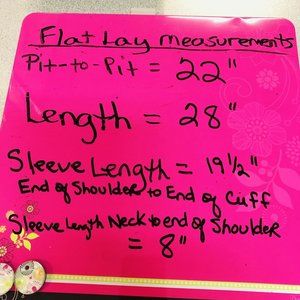 Flat Lay measurements
Pit-to-Pit = 22"
Length = 28"
Sleeve Length = 19 1/2"
End of Shoulder to End of Cuff
Sleeve Length Neck to end of Shoulder
= 8"